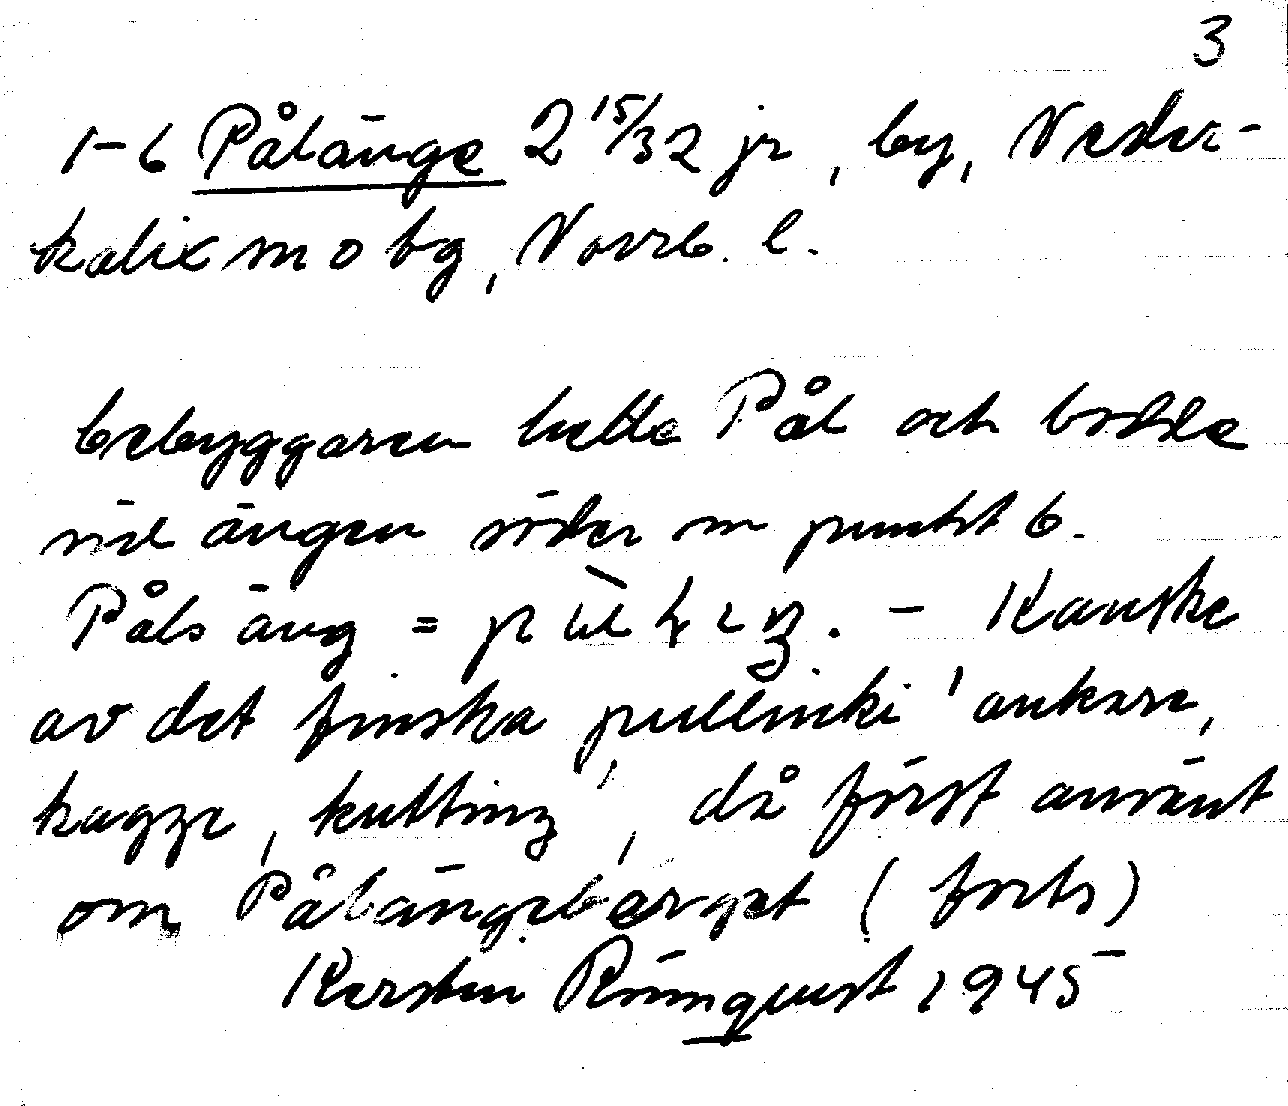 3
1-6 Pålänge 2 15/32 jr, by, Neder-
kalix m o tg, Norrb. l.
bebyggaren hette Pål och bodde
vid ängen söder om punkt 6.
Påls äng = - Kanske
av det finska pullinki 'ankare,
kagge, kutting', då först använt
om Pålängeberget (forts)
Kerstin Rönnquist 1945